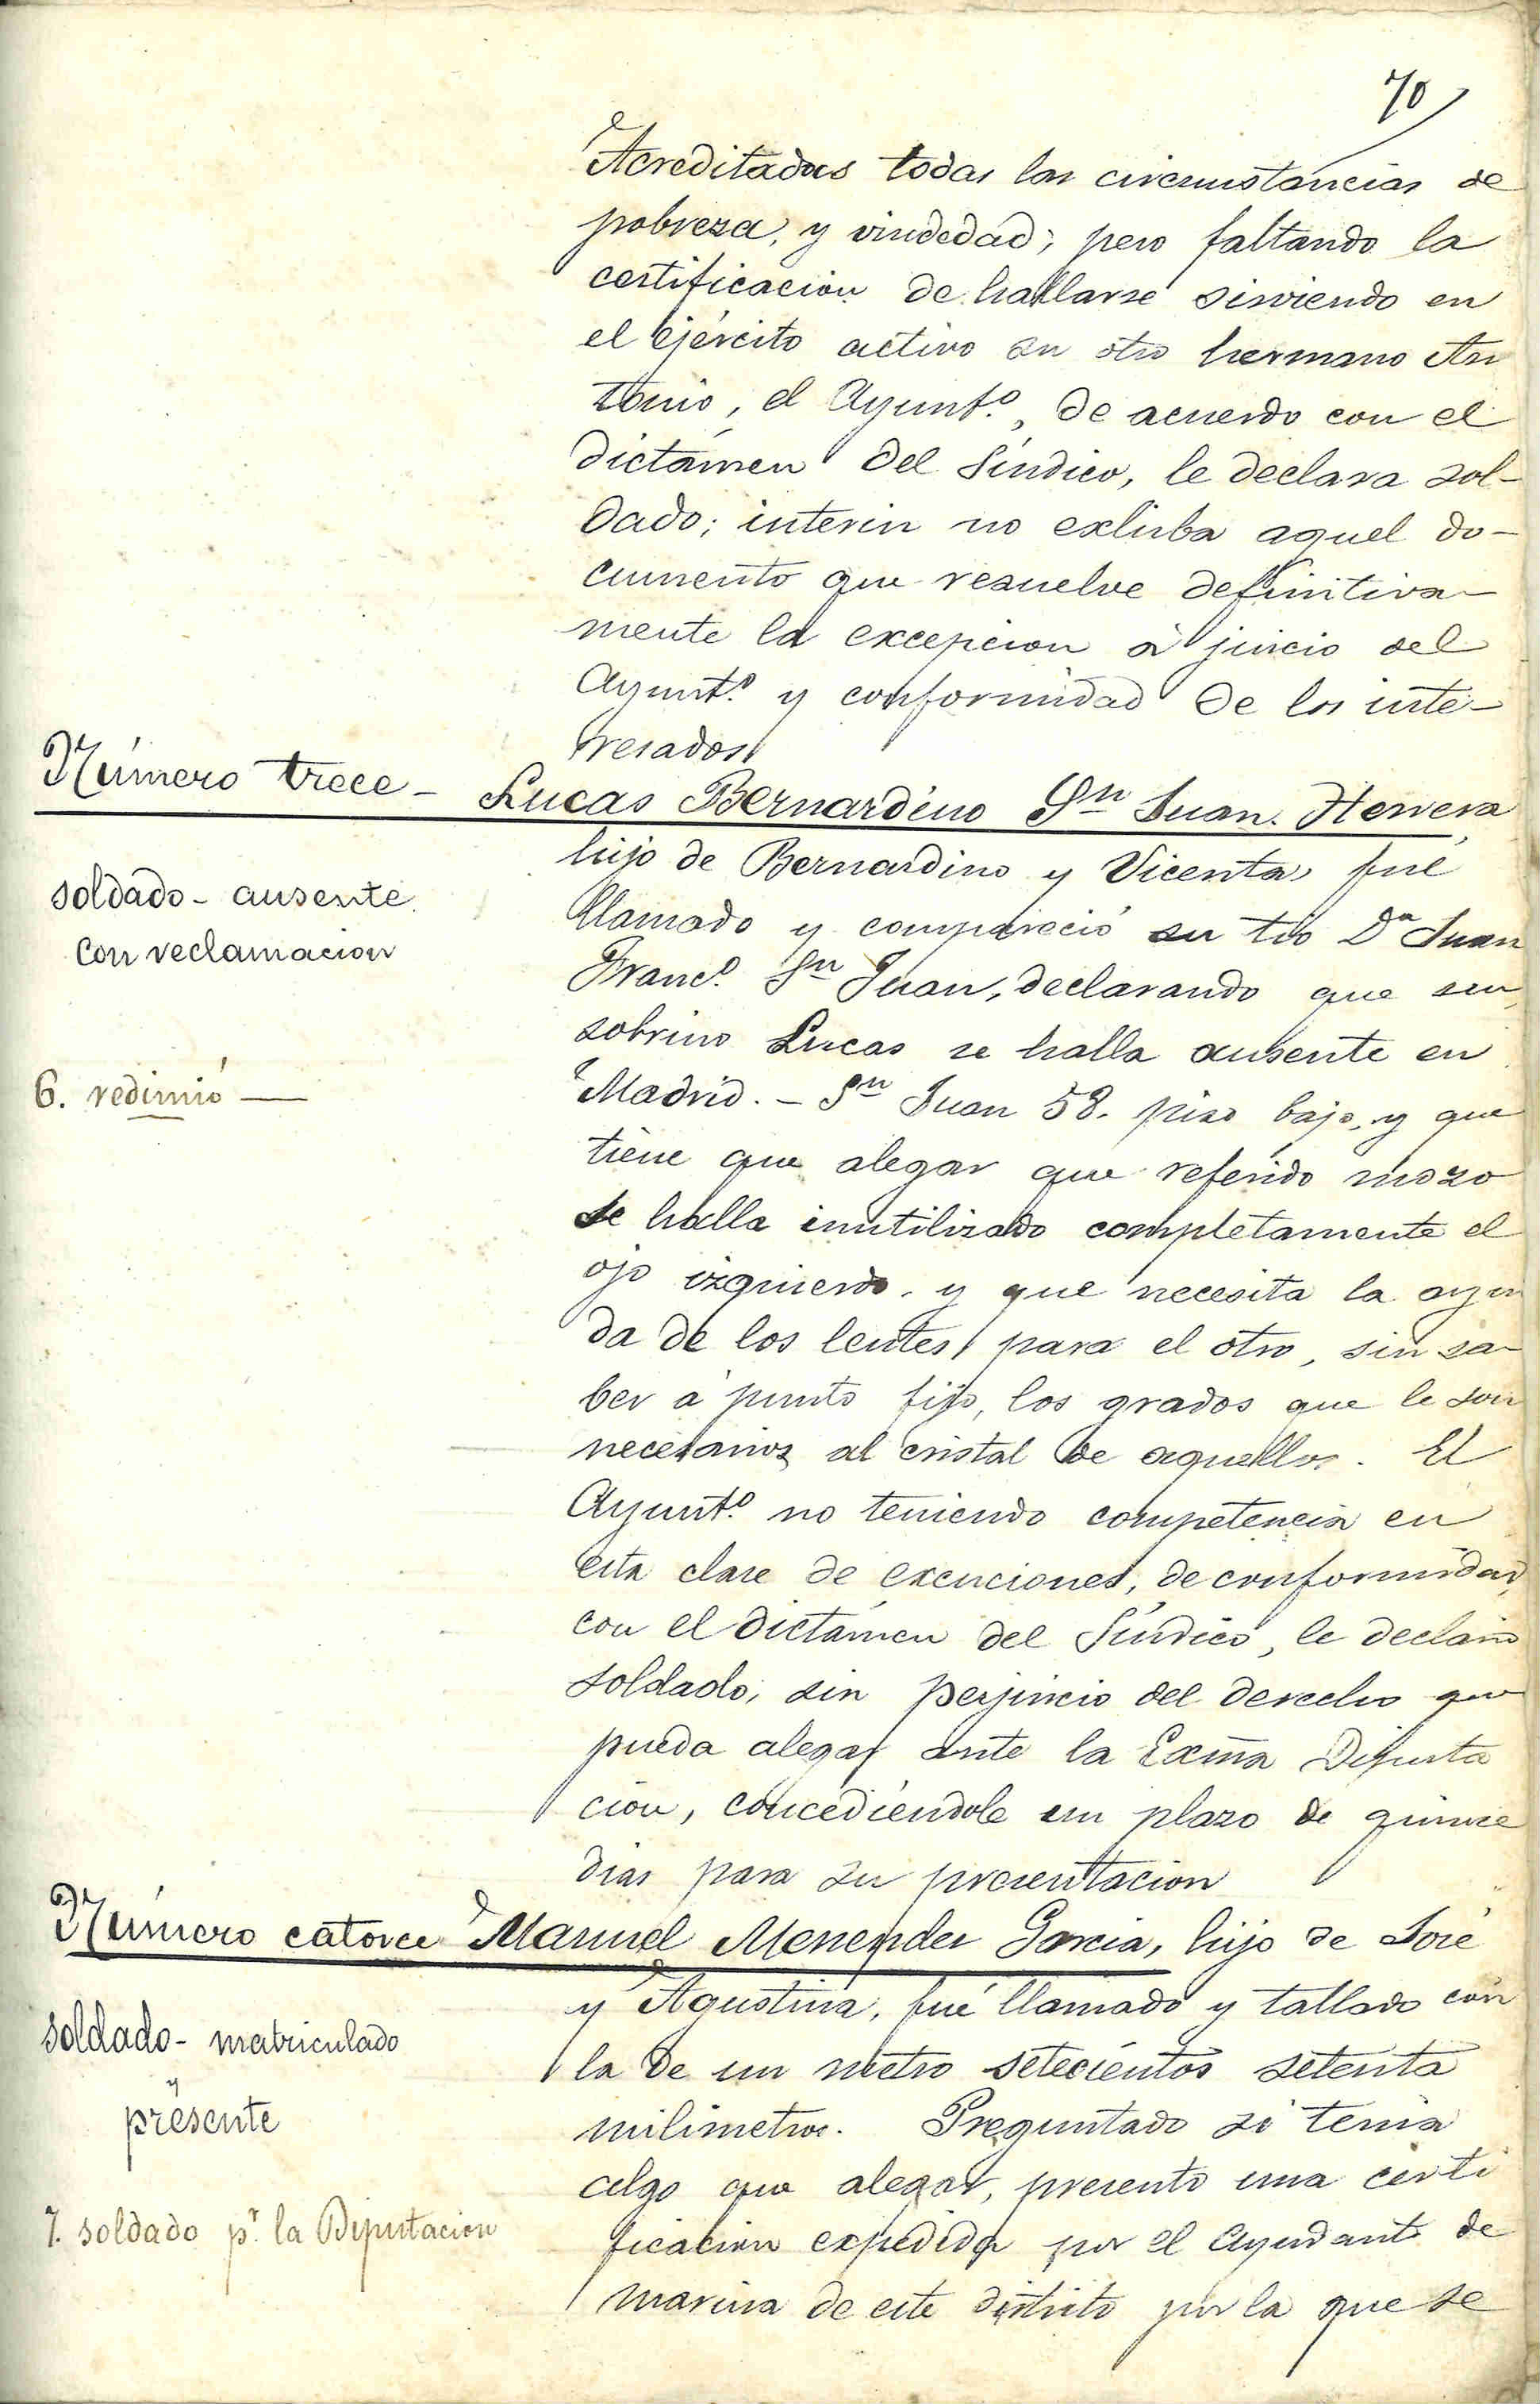 70
Acreditadas todas las circunstancias de
pobreza, y viudedad; pero faltando la
certificacion de hallarse sirviendo en
el ejército activo su otro hermano An
tonio, el Ayunt.º, de acuerdo con el
dictámen del Síndico, le declara sol-
dado; interin no exhiba aquel do-
cumento que resuelve definitiva-
mente la excepcion á juicio del
Ayunt.º y conformidad de los inte-
resados
Número trece - Lucas Bernardino Sn Juan Herrera
hijo de Bernardino y Vicenta, fué
soldado - ausente
con reclamacion
llamado y compareció su tio Dn Juan
Franc.º Sn Juan, declarando que su
sobrino Lucas se halla ausente en
6. redimió —
Madrid. - Sn Juan 58. piso bajo, y que
tiene que alegar que referido mozo
se halla inutilizado completamente el
ojo izquierdo, y que necesita la ayu
da de los lentes para el otro, sin sa-
ber á punto fijo, los grados que le son
necesarios al cristal de aquellos. El
Ayunt.º no teniendo competencia en
esta clase de exenciones, de conformidad
con el dictámen del Síndico, le declaró
soldado, sin perjuicio del derecho que
pueda alegar ante la Exma Diputa
cion, concediéndole un plazo de quince
dias para su presentacion
Número catorce Manuel Menendez Garcia, hijo de José
y Agustina, fué llamado y tallado con
soldado - matriculado
y
presente
la de un metro setecientos setenta
milimetros. Preguntado si tenia
algo que alegar, presentó una certi
7. soldado pr. la Diputacion
ficacion expedida por el Ayudante de
marina de este distrito por la que se